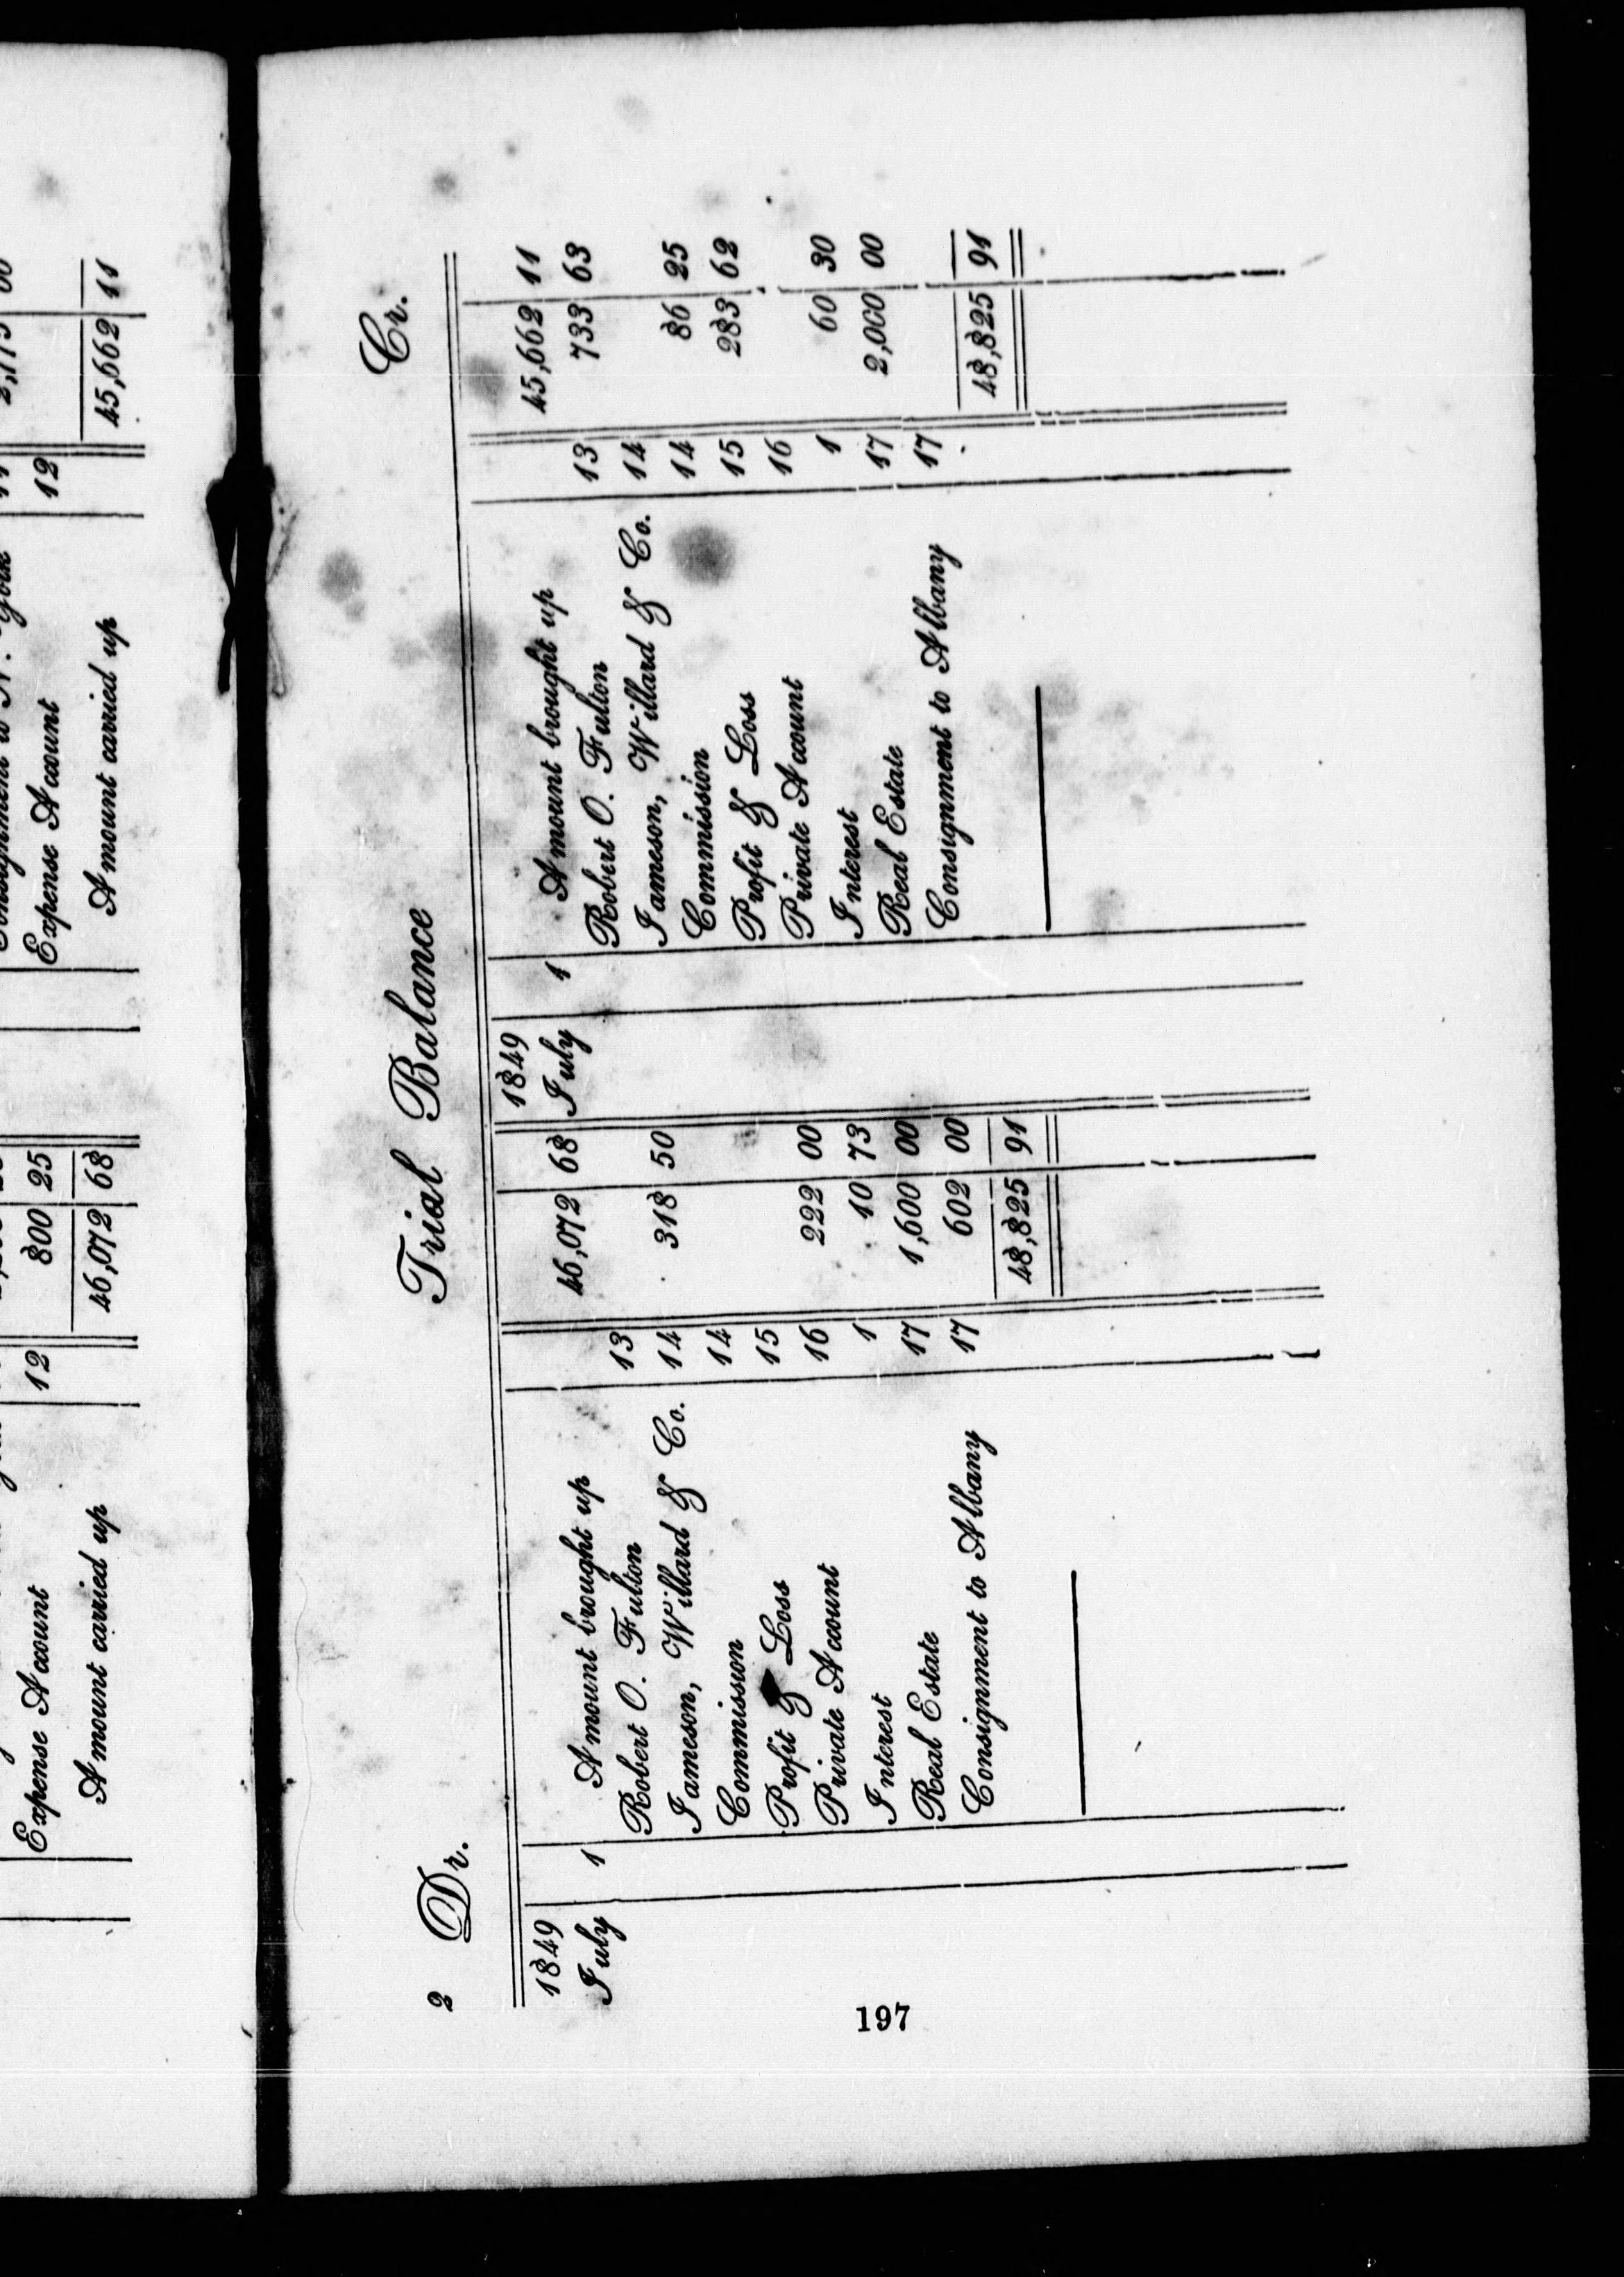 Expense Account 12 800 25
Amount carried up 46,072 68
Expense Account 12
Amount carried up 45,662 11
2 Dr. Trial Balance Cr.
1849
July 1 Amount brought up 46,072 68
Robert O. Fulton 13
Jameson, Willard & Co. 14 318 50
Commission 14
Profit & Loss 15
Private Account 16 222 00
Interest 1 10 73
Real Estate 17 1,600 00
Consignment to Albany 17 602 00
48,825 91
1849
July 1 Amount brought up 45,662 11
Robert O. Fulton 13 733 63
Jameson, Willard & Co. 14
Commission 14 86 25
Profit & Loss 15 283 62
Private Account 16
Interest 1 60 30
Real Estate 17 2,000 00
Consignment to Albany 17
48,825 91
197